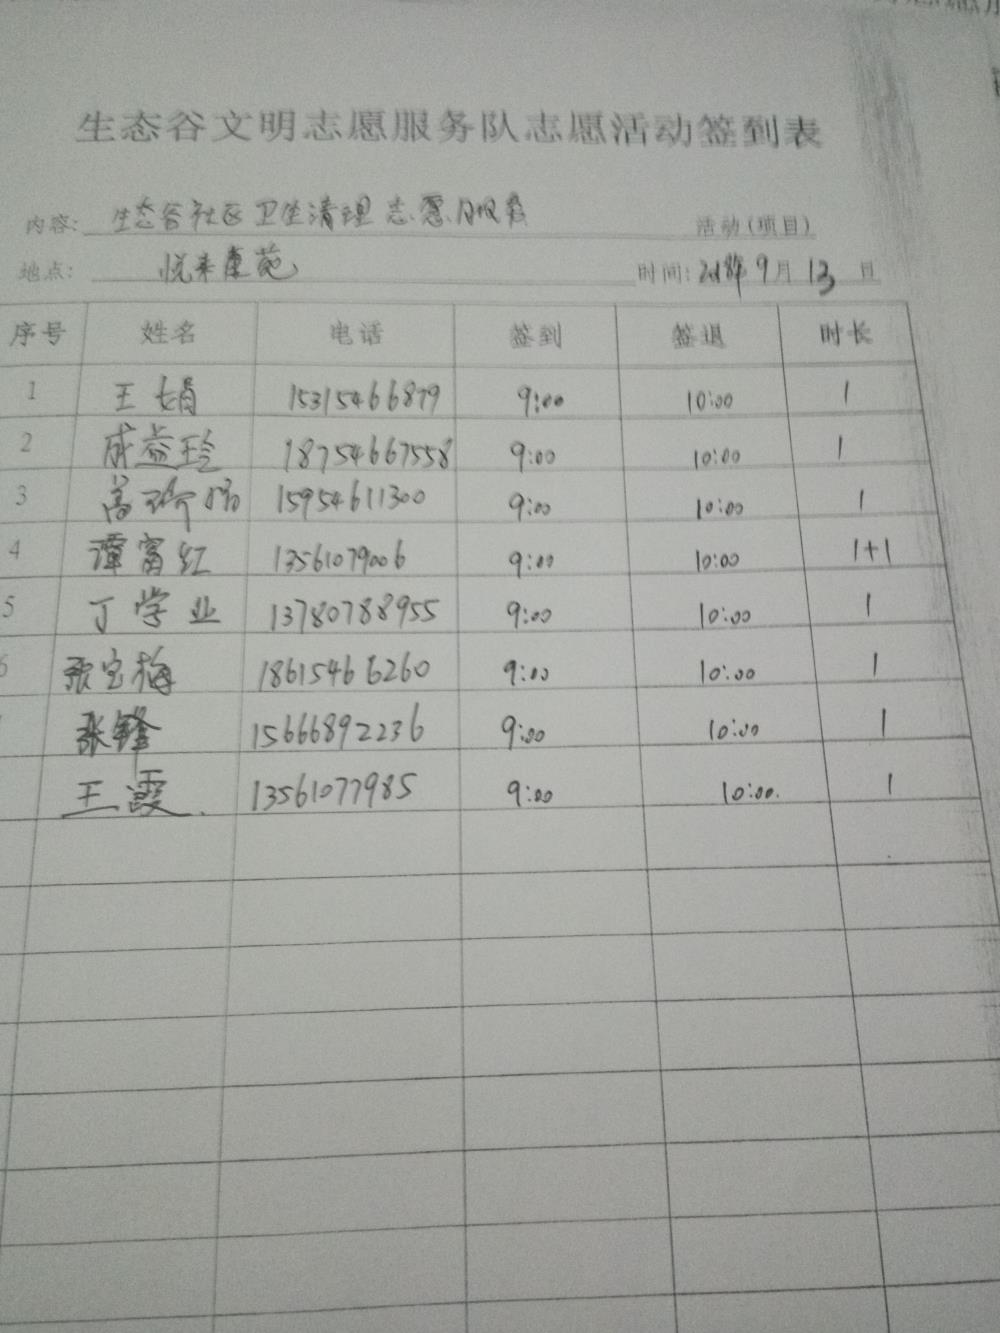 生态谷文明志愿服务队志愿活动签到表
内容: 生态谷社区卫生清理志愿服务 活动(项目)
地点: 悦来康苑 时间: 2018年9月13日
序号 姓名 电话 签到 签退 时长
1 王娟 15315466879 9:00 10:00 1
2 成益玲 18754667558 9:00 10:00 1
3 15954611300 9:00 10:00 1
4 谭富红 13561079006 9:00 10:00 1+1
5 丁学业 13780788955 9:00 10:00 1
6 张宝梅 18615466260 9:00 10:00 1
张锋 15666892236 9:00 10:00 1
王霞. 13561077985 9:00 10:00. 1